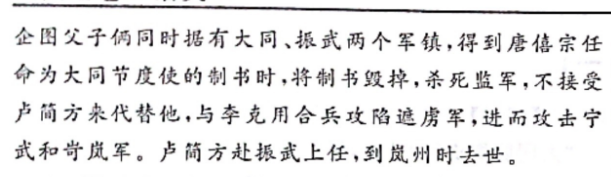 企图父子俩同时据有大同、振武两个军镇，得到唐僖宗任
命为大同节度使的制书时，将制书毁掉，杀死监军，不接受
卢简方来代替他，与李克用合兵攻陷遮虏军，进而攻击宁
武和岢岚军。卢简方赴振武上任，到岚州时去世。